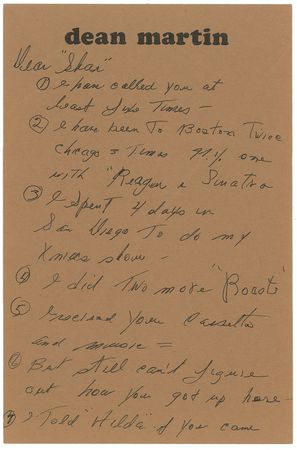 dean martin
Dear "Shar"
① I have called you at
least five Times -
② I have been To Boston Twice
Chicago 3 Times N.Y. one
with "Reagan & Sinatra
③ I Spent 4 days in
San Diego To do my
Xmas show -
④ I did Two more "Roasts"
⑤ I received your Cassette
and music =
⑥ But still can't figure
out how you got up here -
⑦ I Told "Hilda" if you came